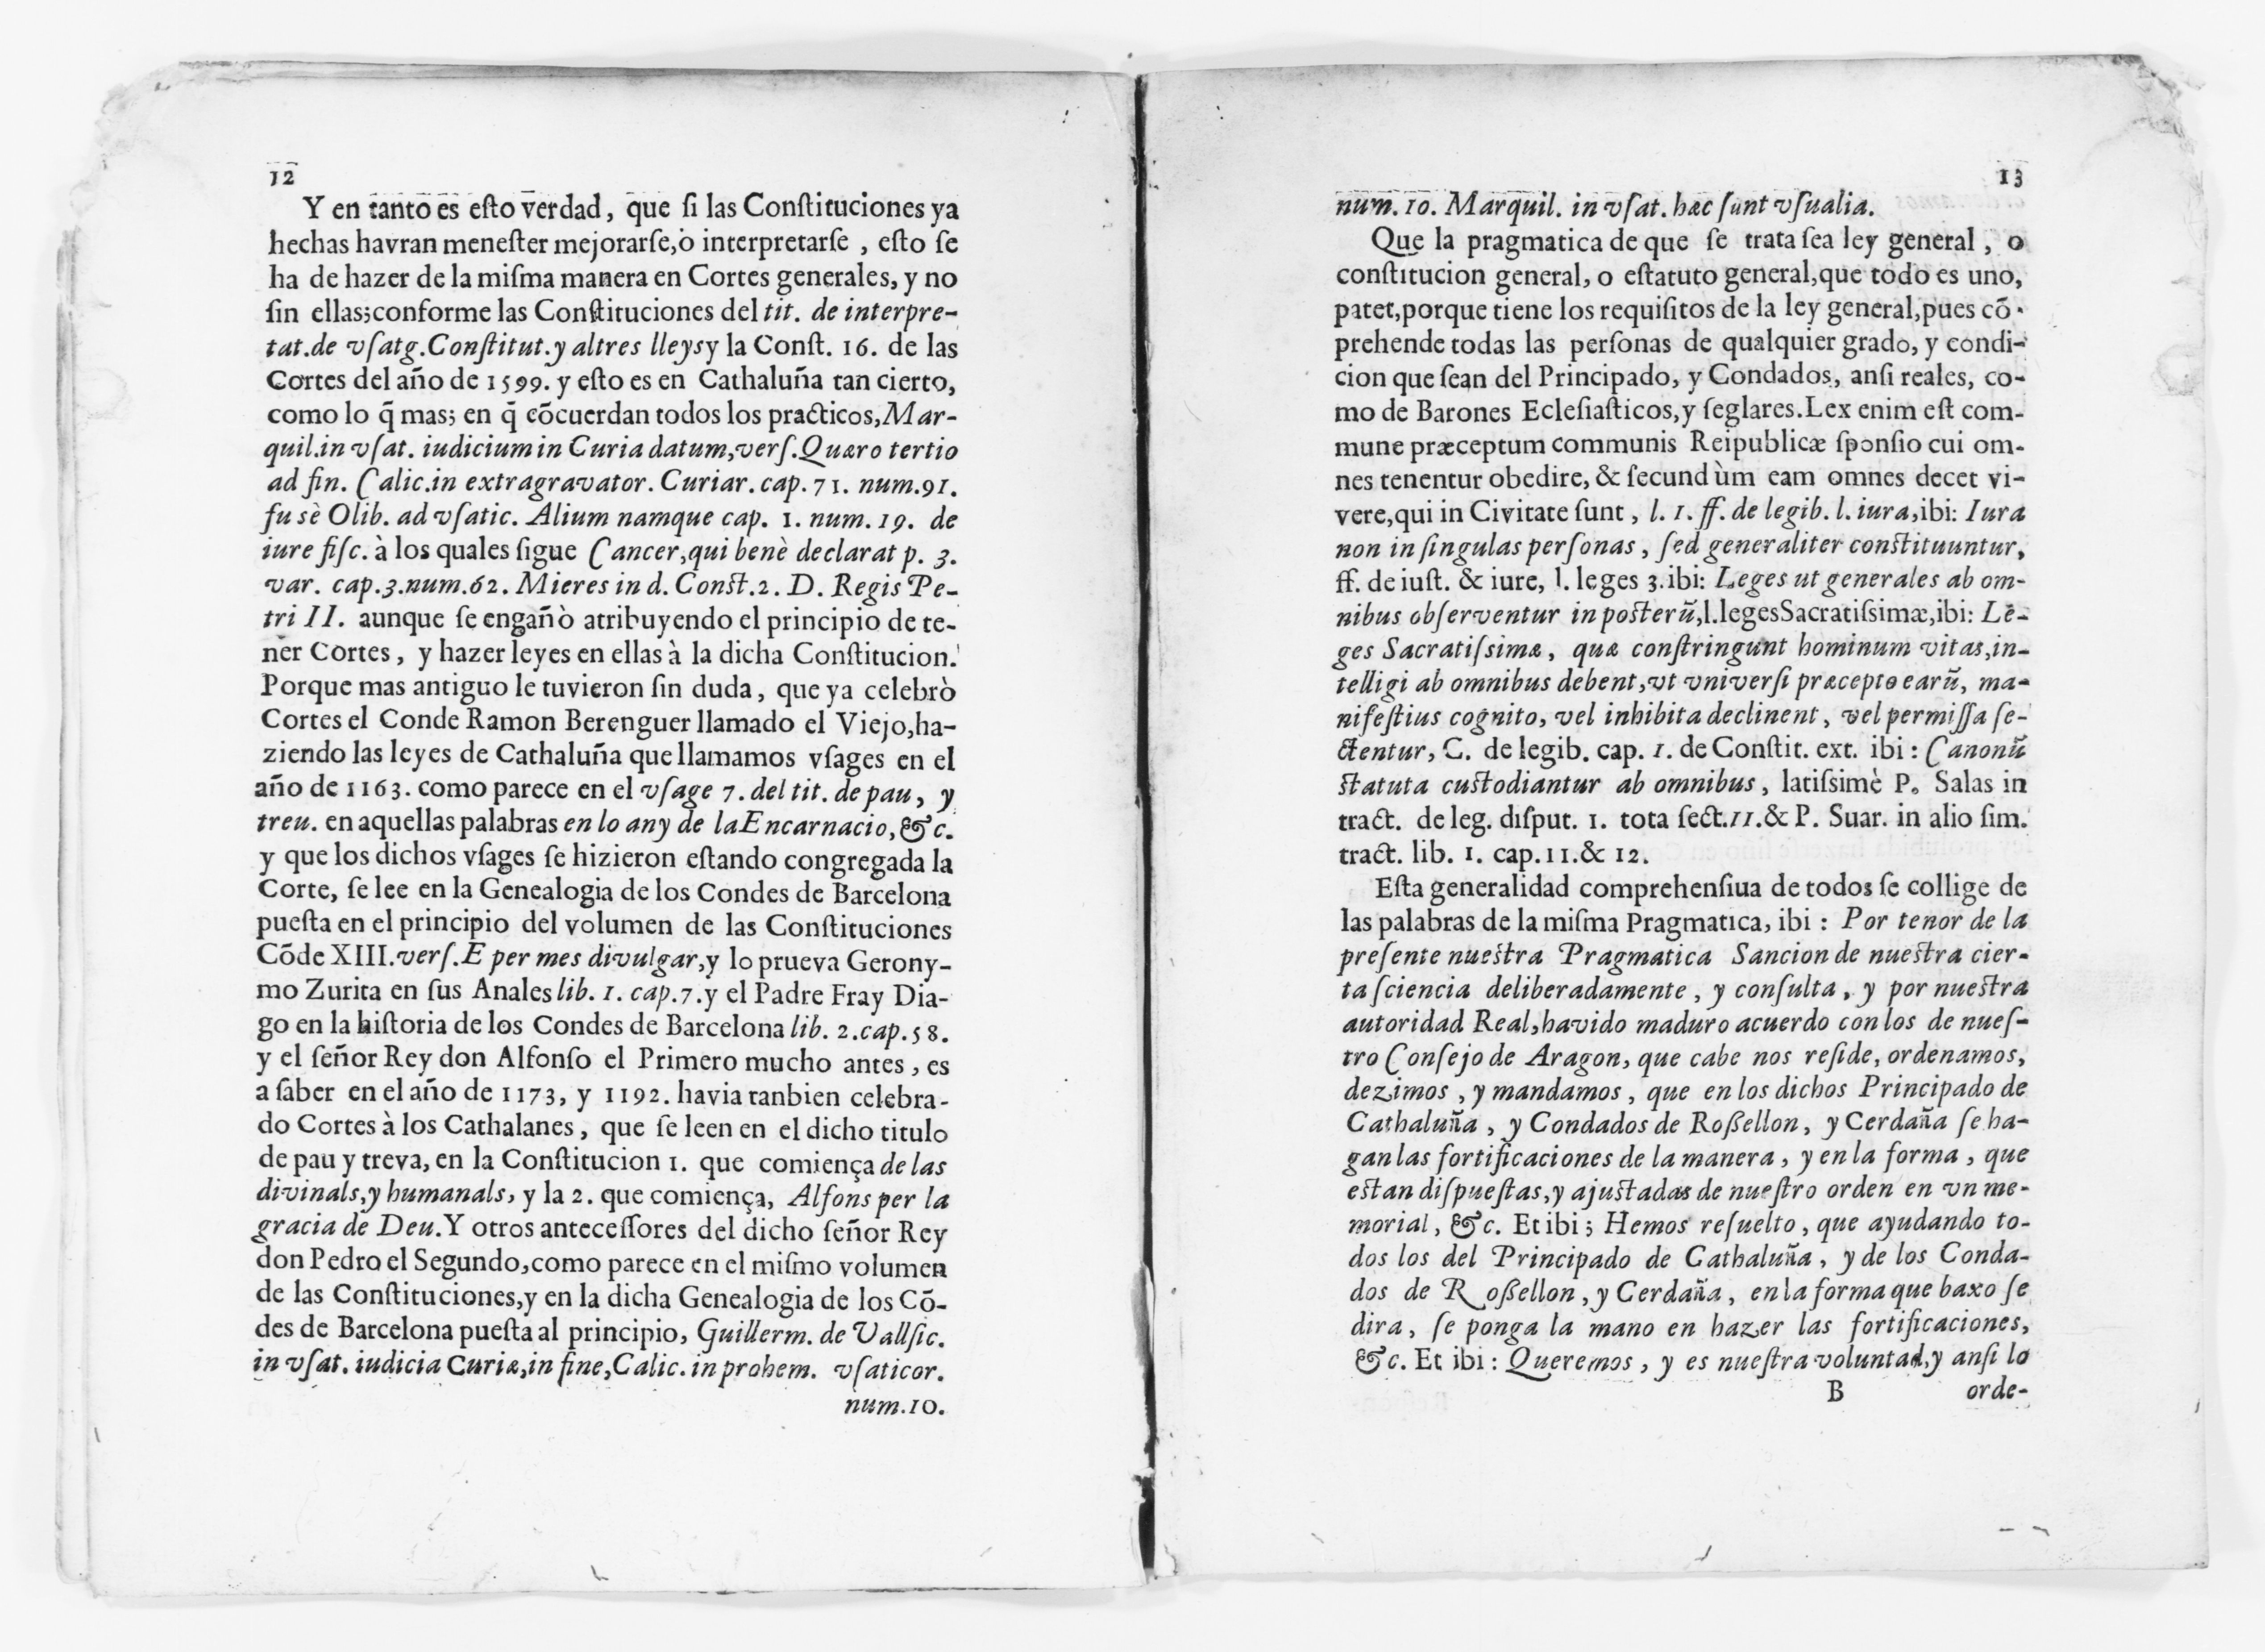 12
Y en tanto es eſto verdad, que ſi las Conſtituciones ya
hechas havran meneſter mejorarſe, ò interpretarſe, eſto ſe
ha de hazer de la miſma manera en Cortes generales, y no
ſin ellas; conforme las Conſtituciones del tit. de interpre-
tat. de vſatg. Conſtitut. y altres lleys y la Conſt. 16. de las
Cortes del año de 1599. y eſto es en Cathaluña tan cierto,
como lo q̃ mas; en q̃ cõcuerdan todos los practicos, Mar-
quil. in vſat. iudicium in Curia datum, verſ. Quæro tertio
ad fin. Calic. in extragravator. Curiar. cap. 71. num. 91.
fusè Olib. ad vſatic. Alium namque cap. 1. num. 19. de
iure fiſc. à los quales ſigue Cancer, qui benè declarat p. 3.
var. cap. 3. num. 62. Mieres in d. Conſt. 2. D. Regis Pe-
tri II. aunque ſe engañò atribuyendo el principio de te-
ner Cortes, y hazer leyes en ellas à la dicha Conſtitucion.
Porque mas antiguo le tuvieron ſin duda, que ya celebrò
Cortes el Conde Ramon Berenguer llamado el Viejo, ha-
ziendo las leyes de Cathaluña que llamamos vſages en el
año de 1163. como parece en el vſage 7. del tit. de pau, y
treu. en aquellas palabras en lo any de la Encarnacio, &c.
y que los dichos vſages ſe hizieron eſtando congregada la
Corte, ſe lee en la Genealogia de los Condes de Barcelona
pueſta en el principio del volumen de las Conſtituciones
Cõde XIII. verſ. E per mes divulgar, y lo prueva Gerony-
mo Zurita en ſus Anales lib. 1. cap. 7. y el Padre Fray Dia-
go en la hiſtoria de los Condes de Barcelona lib. 2. cap. 58.
y el ſeñor Rey don Alfonſo el Primero mucho antes, es
a ſaber en el año de 1173, y 1192. havia tanbien celebra-
do Cortes à los Cathalanes, que ſe leen en el dicho titulo
de pau y treva, en la Conſtitucion 1. que comiença de las
divinals, y humanals, y la 2. que comiença, Alfons per la
gracia de Deu. Y otros anteceſſores del dicho ſeñor Rey
don Pedro el Segundo, como parece en el miſmo volumen
de las Conſtituciones, y en la dicha Genealogia de los Cõ-
des de Barcelona pueſta al principio, Guillerm. de Vallſic.
in vſat. iudicia Curiæ, in fine, Calic. in prohem. vſaticor.
num. 10.
13
num. 10. Marquil. in vſat. hæc ſunt vſualia.
Que la pragmatica de que ſe trata ſea ley general, o
conſtitucion general, o eſtatuto general, que todo es uno,
patet, porque tiene los requiſitos de la ley general, pues cõ-
prehende todas las perſonas de qualquier grado, y condi-
cion que ſean del Principado, y Condados, anſi reales, co-
mo de Barones Ecleſiaſticos, y ſeglares. Lex enim eſt com-
mune præceptum communis Reipublicæ ſponſio cui om-
nes tenentur obedire, & ſecundùm eam omnes decet vi-
vere, qui in Civitate ſunt, l. 1. ff. de legib. l. iura, ibi: Iura
non in ſingulas perſonas, ſed generaliter conſtituuntur,
ff. de iuſt. & iure, l. leges 3. ibi: Leges ut generales ab om-
nibus obſerventur in poſterũ, l. leges Sacratiſsimæ, ibi: Le-
ges Sacratiſsimæ, quæ conſtringunt hominum vitas, in-
telligi ab omnibus debent, vt vniverſi præcepto earũ, ma-
nifeſtius cognito, vel inhibita declinent, vel permiſſa ſe-
ctentur, C. de legib. cap. 1. de Conſtit. ext. ibi: Canonũ
ſtatuta cuſtodiantur ab omnibus, latiſsimè P. Salas in
tract. de leg. diſput. 1. tota ſect. 11. & P. Suar. in alio ſim.
tract. lib. 1. cap. 11. & 12.
Eſta generalidad comprehenſiua de todos ſe collige de
las palabras de la miſma Pragmatica, ibi: Por tenor de la
preſente nueſtra Pragmatica Sancion de nueſtra cier-
ta ſciencia deliberadamente, y conſulta, y por nueſtra
autoridad Real, havido maduro acuerdo con los de nueſ-
tro Conſejo de Aragon, que cabe nos reſide, ordenamos,
dezimos, y mandamos, que en los dichos Principado de
Cathaluña, y Condados de Roßellon, y Cerdaña ſe ha-
gan las fortificaciones de la manera, y en la forma, que
eſtan diſpueſtas, y ajuſtadas de nueſtro orden en vn me-
morial, &c. Et ibi; Hemos reſuelto, que ayudando to-
dos los del Principado de Cathaluña, y de los Conda-
dos de Roßellon, y Cerdaña, en la forma que baxo ſe
dira, ſe ponga la mano en hazer las fortificaciones,
&c. Et ibi: Queremos, y es nueſtra voluntad, y anſi lo
B orde-